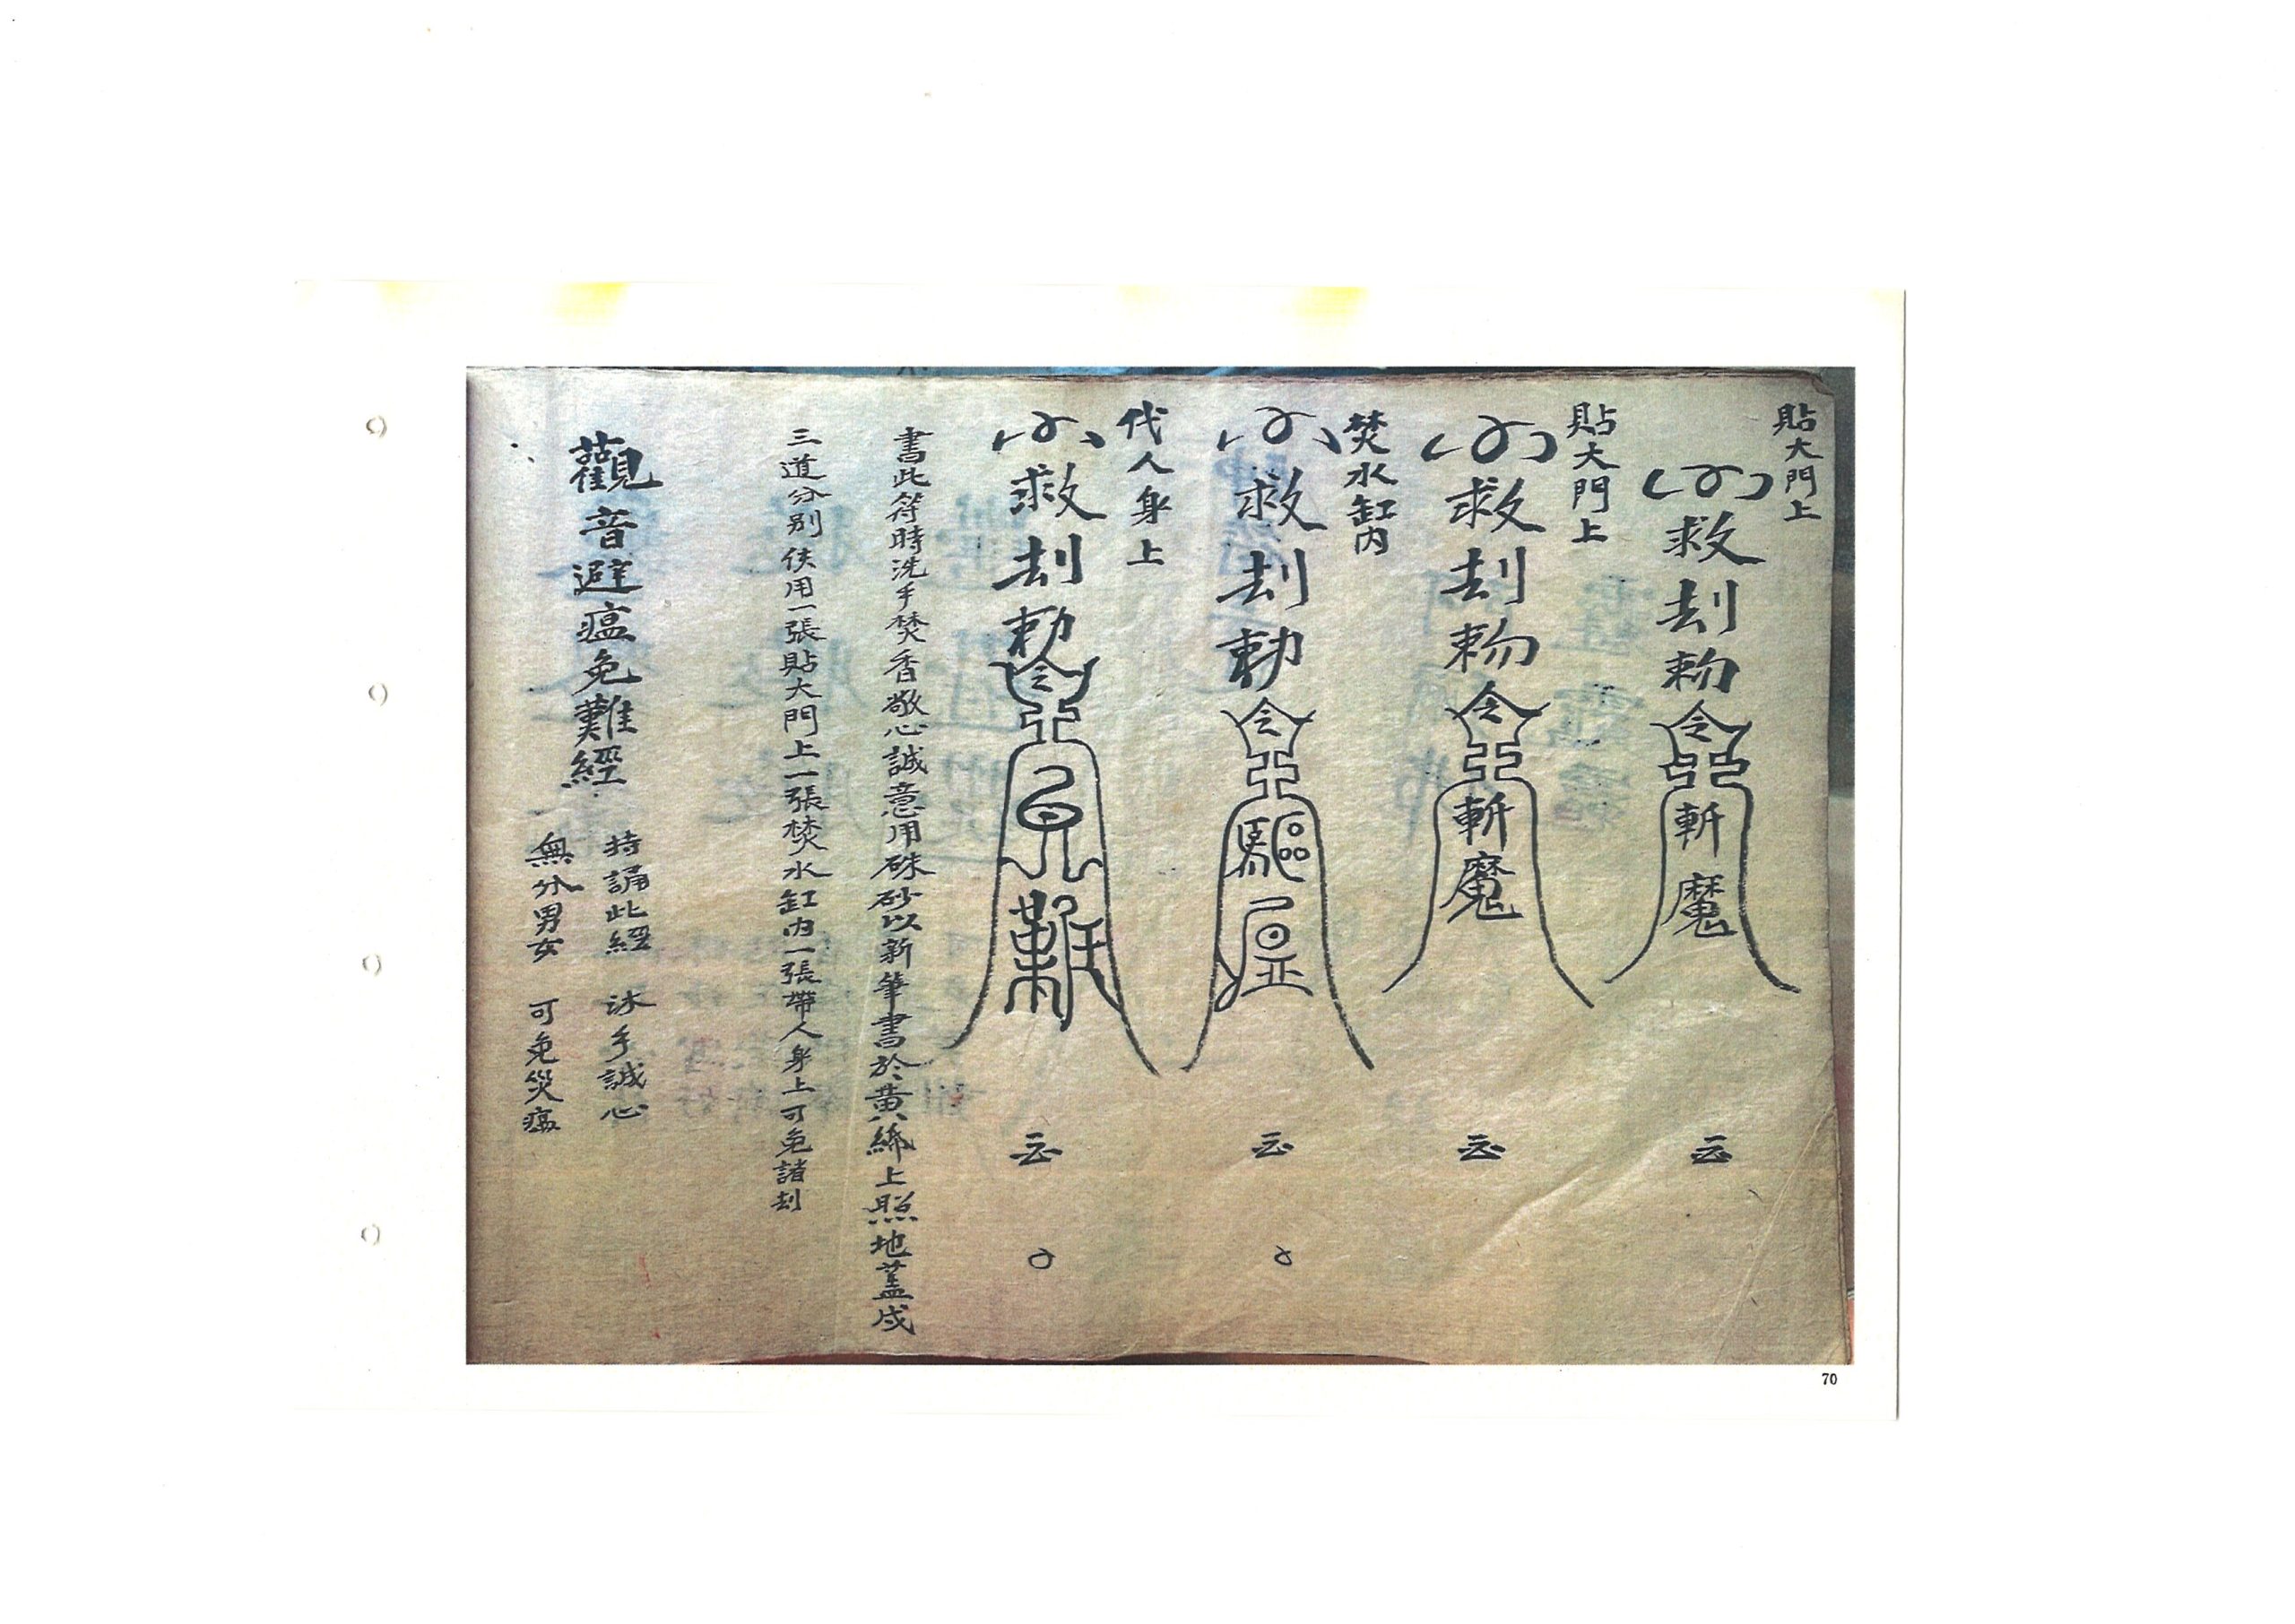 貼大門上
救刦勅令
斬魔
云
貼大門上
救刦勅令
斬魔
云
焚水缸内
救刦勅令
驅
云
代人身上
救刦勅令
云
書此符時洗手焚香敬心誠意用硃砂以新筆書於黃紙上照地蓋成
三道分别使用一張貼大門上一張焚水缸内一張帶人身上可免諸刦
觀音避瘟免難經
持誦此經 沐手誠心
無分男女 可免災瘟
70